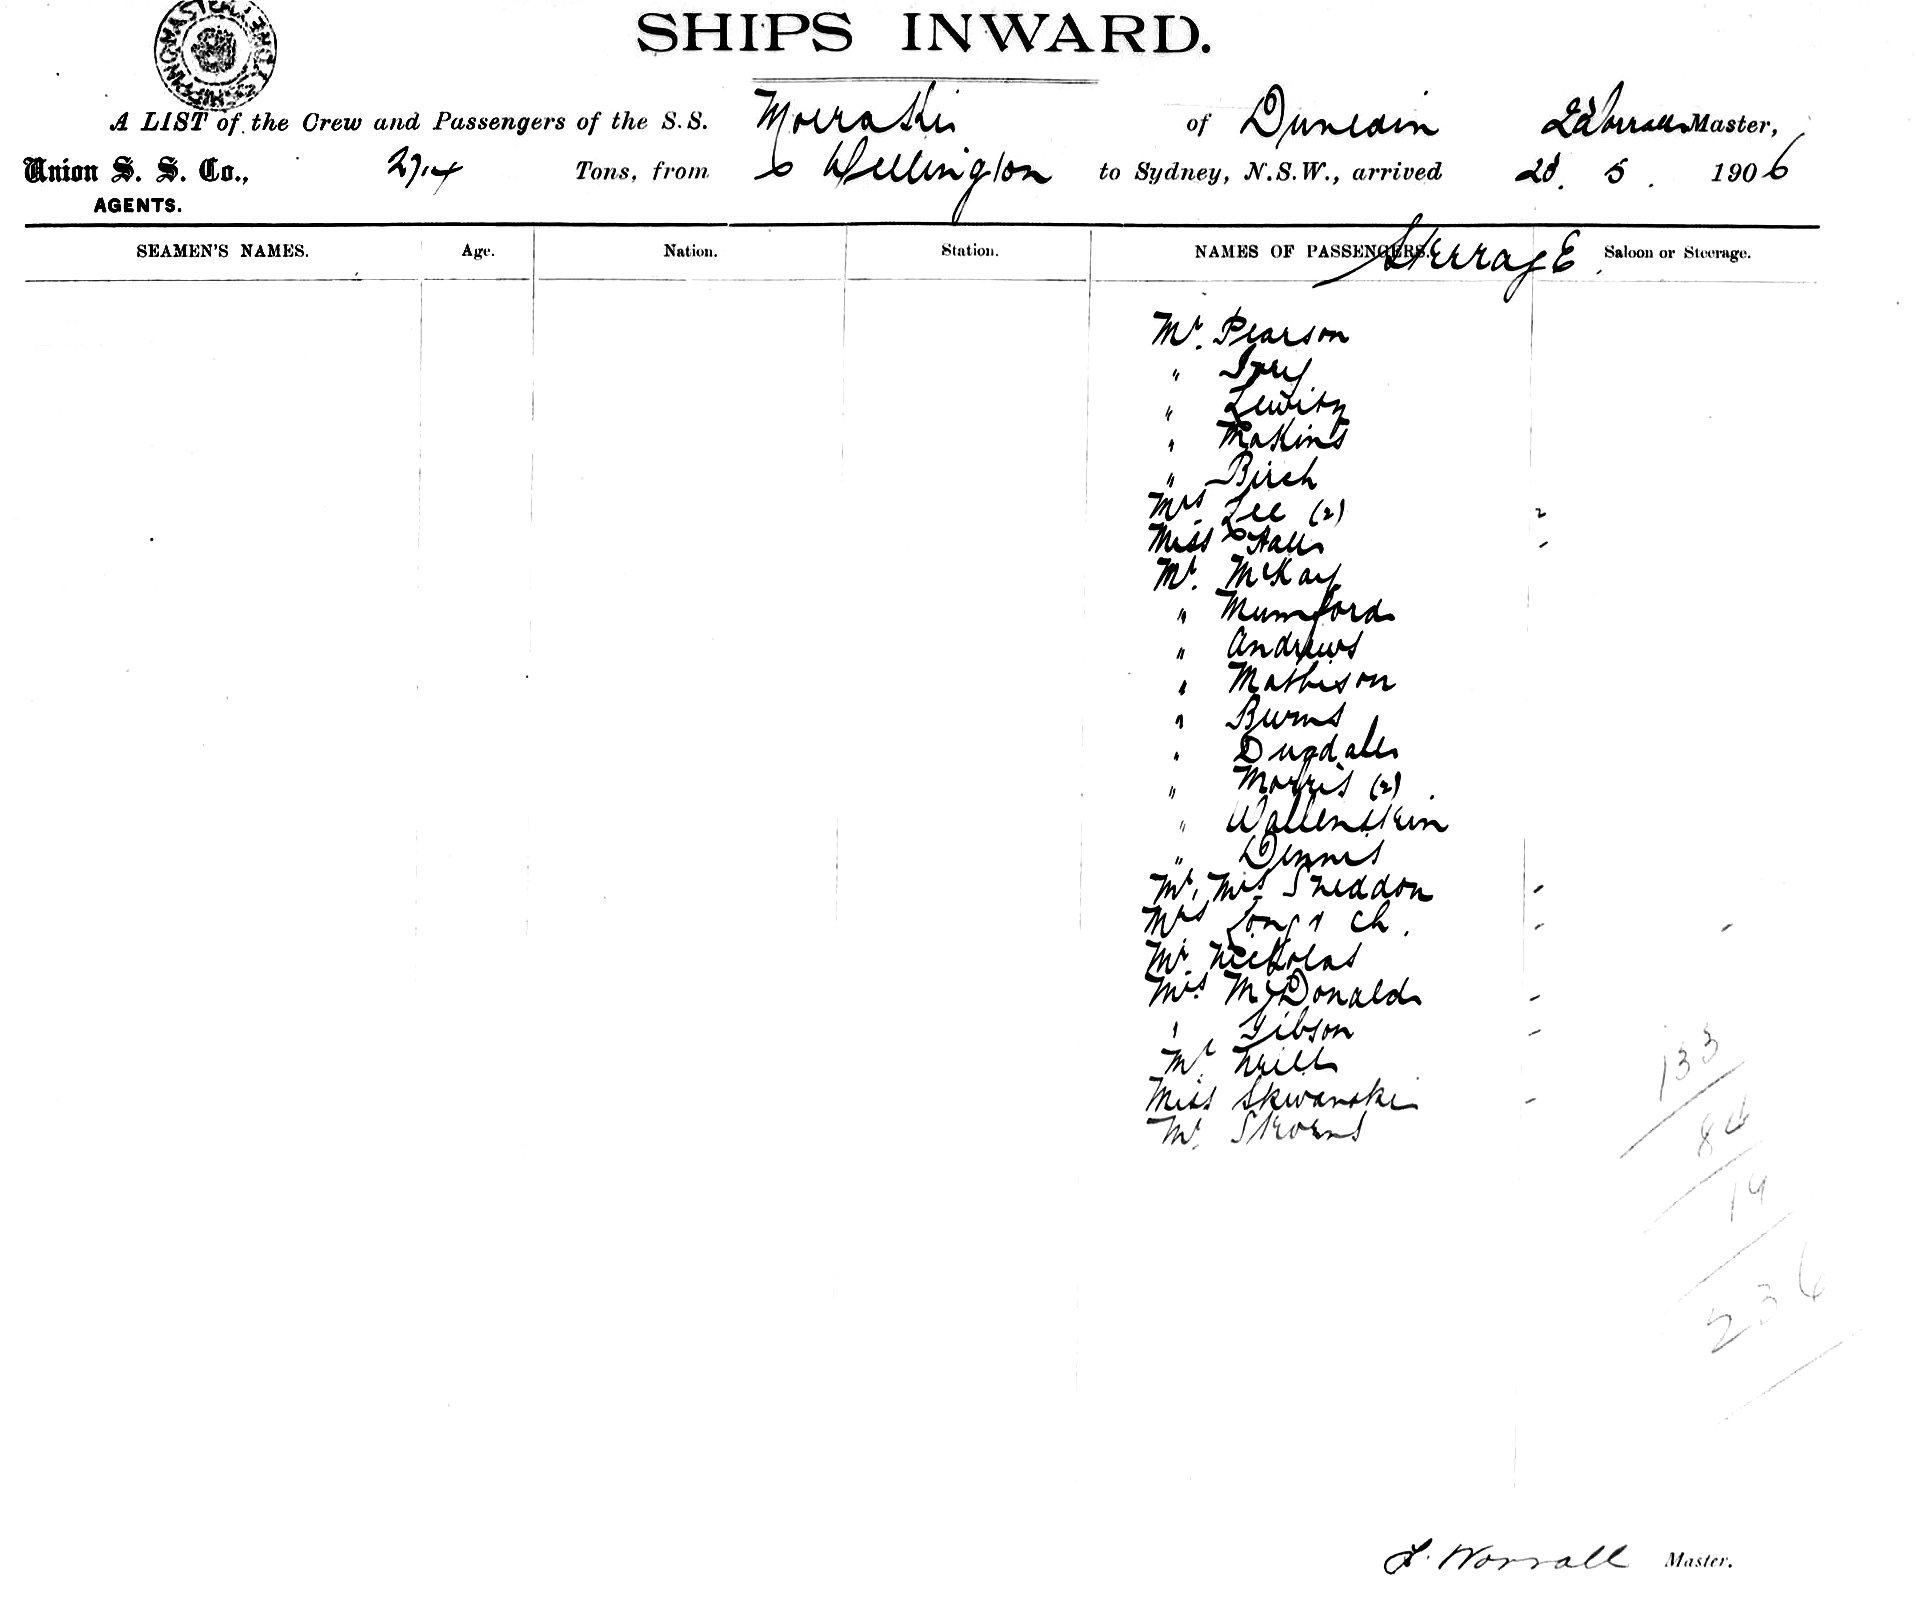 SHIPS INWARD.
A LIST of the Crew and Passengers of the S.S. Moeraki of Dunedin Worrall Master,
Union S. S. Co., 2714 Tons, from Wellington to Sydney, N.S.W., arrived 28. 5. 1906
AGENTS.
SEAMEN'S NAMES. Age. Nation. Station. NAMES OF PASSENGERS. Steerage Saloon or Steerage.
Mr. Pearson
" Ivey
" Lewity
" Makins
" Birch
Mrs Lee (2) 2
Miss Hall
Mr. McKay
" Mumford
" Andrews
" Mathison
" Burns
" Dugdale
" Morris (2)
" Wallenstein
" Dennis
Mr, Mrs Sneddon
Mrs Long & Ch.
Mr. Nicholas
Mrs. McDonald
" Gibson
Mr. Neill
Miss Skwanski
Mr. Stevens
133
84
19
236
Worrall Master.